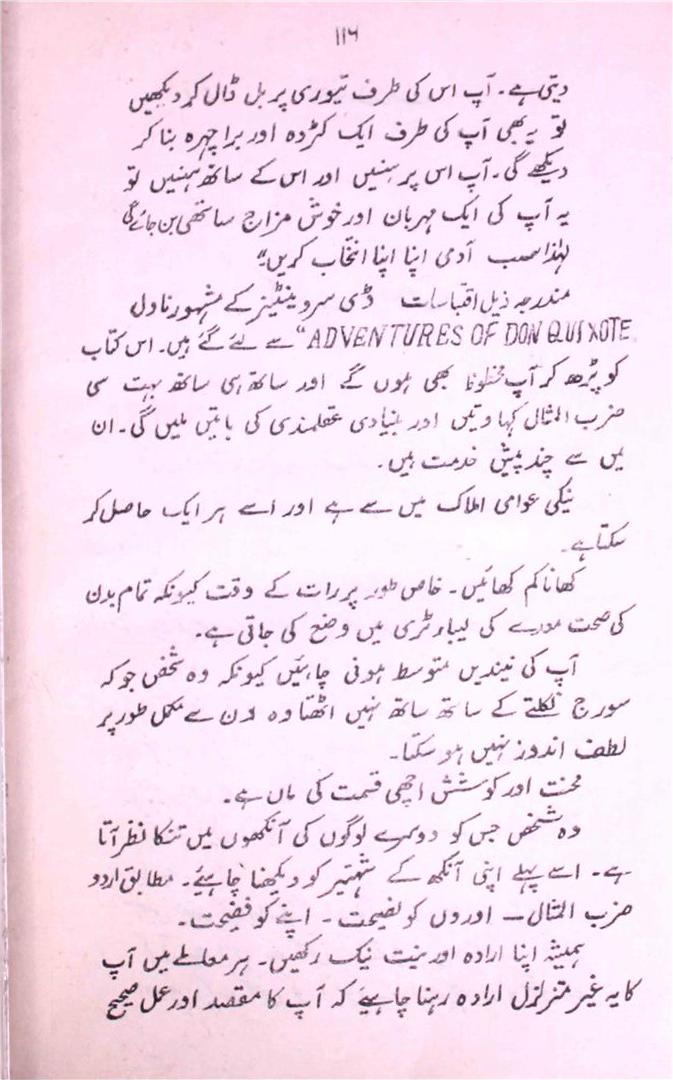 ۱۱۶
دیتی ہے۔ آپ اس کی طرف تیوری پر بل ڈال کر دیکھیں
تو یہ بھی آپ کی طرف ایک کڑدہ اور برا چہرہ بنا کر
دیکھے گی۔ آپ اس پر ہنسیں اور اس کے ساتھ ہنسیں تو
یہ آپ کی ایک مہربان اور خوش مزاج ساتھی بن جائے گی
لہٰذا سب آدمی اپنا اپنا انتخاب کریں"
مندرجہ ذیل اقتباسات ڈی سروینٹیز کے مشہور ناول
ADVENTURES OF DON QUIXOTE" سے لئے گئے ہیں۔ اس کتاب
کو پڑھ کر آپ محظوظ بھی ہوں گے اور ساتھ ہی ساتھ بہت سی
ضرب المثال کہاوتیں اور بنیادی عقلمندی کی باتیں ملیں گی۔ ان
میں سے چند پیش خدمت ہیں۔
نیکی عوامی املاک میں سے ہے اور اسے ہر ایک حاصل کر
سکتا ہے۔
کھانا کم کھائیں۔ خاص طور پر رات کے وقت کیونکہ تمام بدن
کی صحت معدے کی لیباءٹری میں وضع کی جاتی ہے۔
آپ کی نیندیں متوسط ہونی چاہئیں کیونکہ وہ شخص جو کہ
سورج نکلنے کے ساتھ ساتھ نہیں اٹھتا وہ دن سے مکمل طور پر
لطف اندوز نہیں ہو سکتا۔
محنت اور کوشش اچھی قسمت کی ماں ہے۔
وہ شخص جس کو دوسرے لوگوں کی آنکھوں میں تنکا نظر آتا
ہے۔ اسے پہلے اپنی آنکھ کے شہتیر کو دیکھنا چاہیئے۔ مطابق اردو
ضرب المثال – اوروں کو نصیحت – اپنے کو فضیحت۔
ہمیشہ اپنا ارادہ اور نیت نیک رکھیں۔ ہر معاملے میں آپ
کا یہ غیر متزلزل ارادہ رہنا چاہیئے کہ آپ کا مقصد اور عمل صحیح